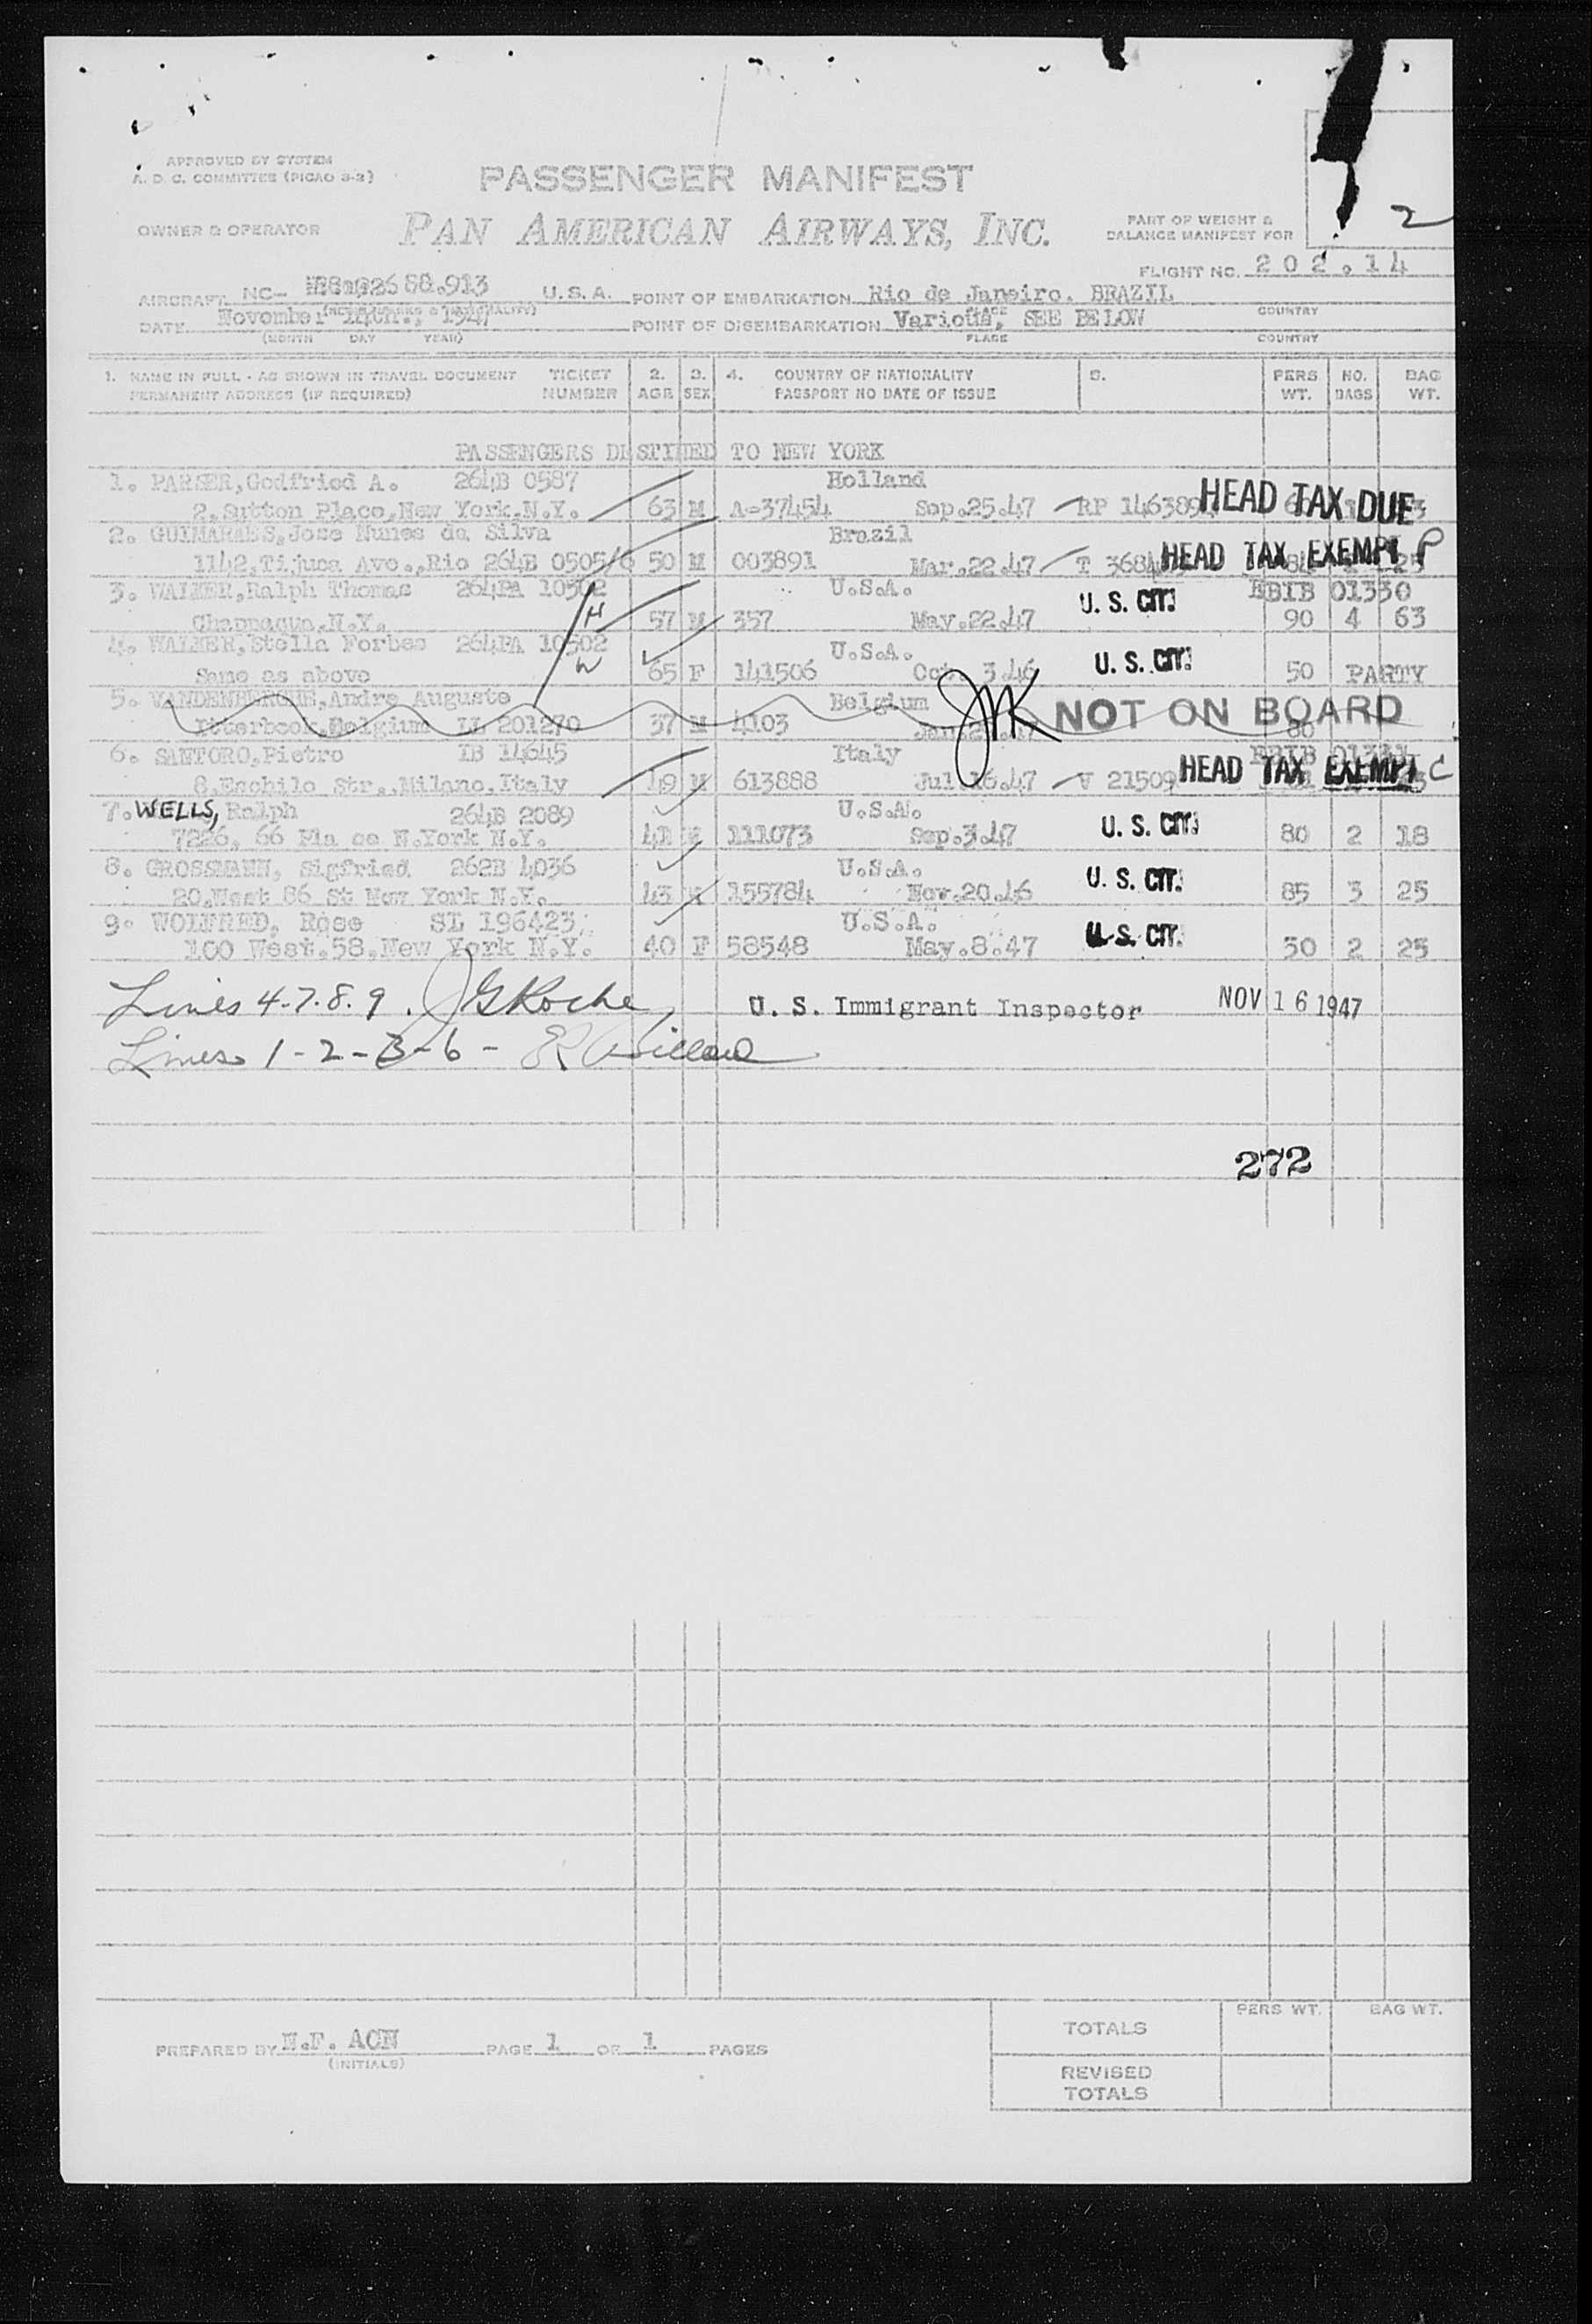 APPROVED BY SYSTEM
A. D. C. COMMITTEE (PICAO 3-2)
PASSENGER MANIFEST
OWNER & OPERATOR
PAN AMERICAN AIRWAYS, INC.
PART OF WEIGHT &
BALANCE MANIFEST FOR
2
FLIGHT NO. 202.14
AIRCRAFT NC- 88.913 U.S.A. POINT OF EMBARKATION Rio de Janeiro. BRAZIL
DATE November 14th., 1947 POINT OF DISEMBARKATION Various, SEE BELOW
(MONTH DAY YEAR) PLACE COUNTRY
1. NAME IN FULL - AS SHOWN IN TRAVEL DOCUMENT TICKET 2. 3. 4. COUNTRY OF NATIONALITY 5. PERS NO. BAG
PERMANENT ADDRESS (IF REQUIRED) NUMBER AGE SEX PASSPORT NO DATE OF ISSUE WT. BAGS WT.
PASSENGERS DESTINED TO NEW YORK
1. PARSER, Godfried A. 264B 0587 Holland
2, Sutton Place, New York.N.Y. 63 M A-37454 Sep.25.47 RP HEAD TAX DUE
2. GUIMARAES, Jose Nunes da Silva Brazil
1142, Tijuca Ave., Rio 264B 0505/6 50 M 003891 Mar.22.47 T HEAD TAX EXEMPT P
3. WALKER, Ralph Thomas 264PA 10502 U.S.A. EBIB 01330
Chappaqua, N.Y. 57 M 357 May.22.47 U. S. CIT. 90 4 63
4. WALKER, Stella Forbes 264PA 10502 U.S.A.
Same as above 65 F 141506 Oct. 3.46 U. S. CIT. 50 PARTY
5. VANDENBERGHE, Andre Auguste Belgium
Itterbeek, Belgium LL 201270 37 M 4103 NOT ON BOARD 80
6. SANTORO, Pietro IB 14645 Italy EBIB
8, Eschilo Str., Milano, Italy 49 M 613888 Jul.16.47 V 21509 HEAD TAX EXEMPT C
7. WELLS, Ralph 264B 2089 U.S.A.
7226, 66 Pla ce N.York N.Y. 41 M 111073 Sep.3.47 U. S. CIT. 80 2 18
8. GROSSMANN, Sigfried 262B 4036 U.S.A.
20.West 86 St New York N.Y. 43 M 155784 Nov.20.46 U. S. CIT. 85 3 25
9. WOLFRED, Rose SL 196423 U.S.A.
100 West.58.New York N.Y. 40 F 58548 May.8.47 U. S. CIT. 50 2 25
Lines 4-7.8.9. J G Roche, U. S. Immigrant Inspector NOV 16 1947
Lines 1-2-3-6-
272
PREPARED BY PAGE 1 OF 1 PAGES
(INITIALS)
PERS WT. BAG WT.
TOTALS
REVISED
TOTALS